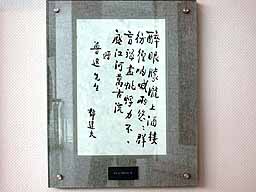 醉眼朦朧上酒樓
彷徨吶喊兩悠々群
盲竭盡蚍蜉力不
廢江河萬古流
贈
魯迅先生
郁達夫